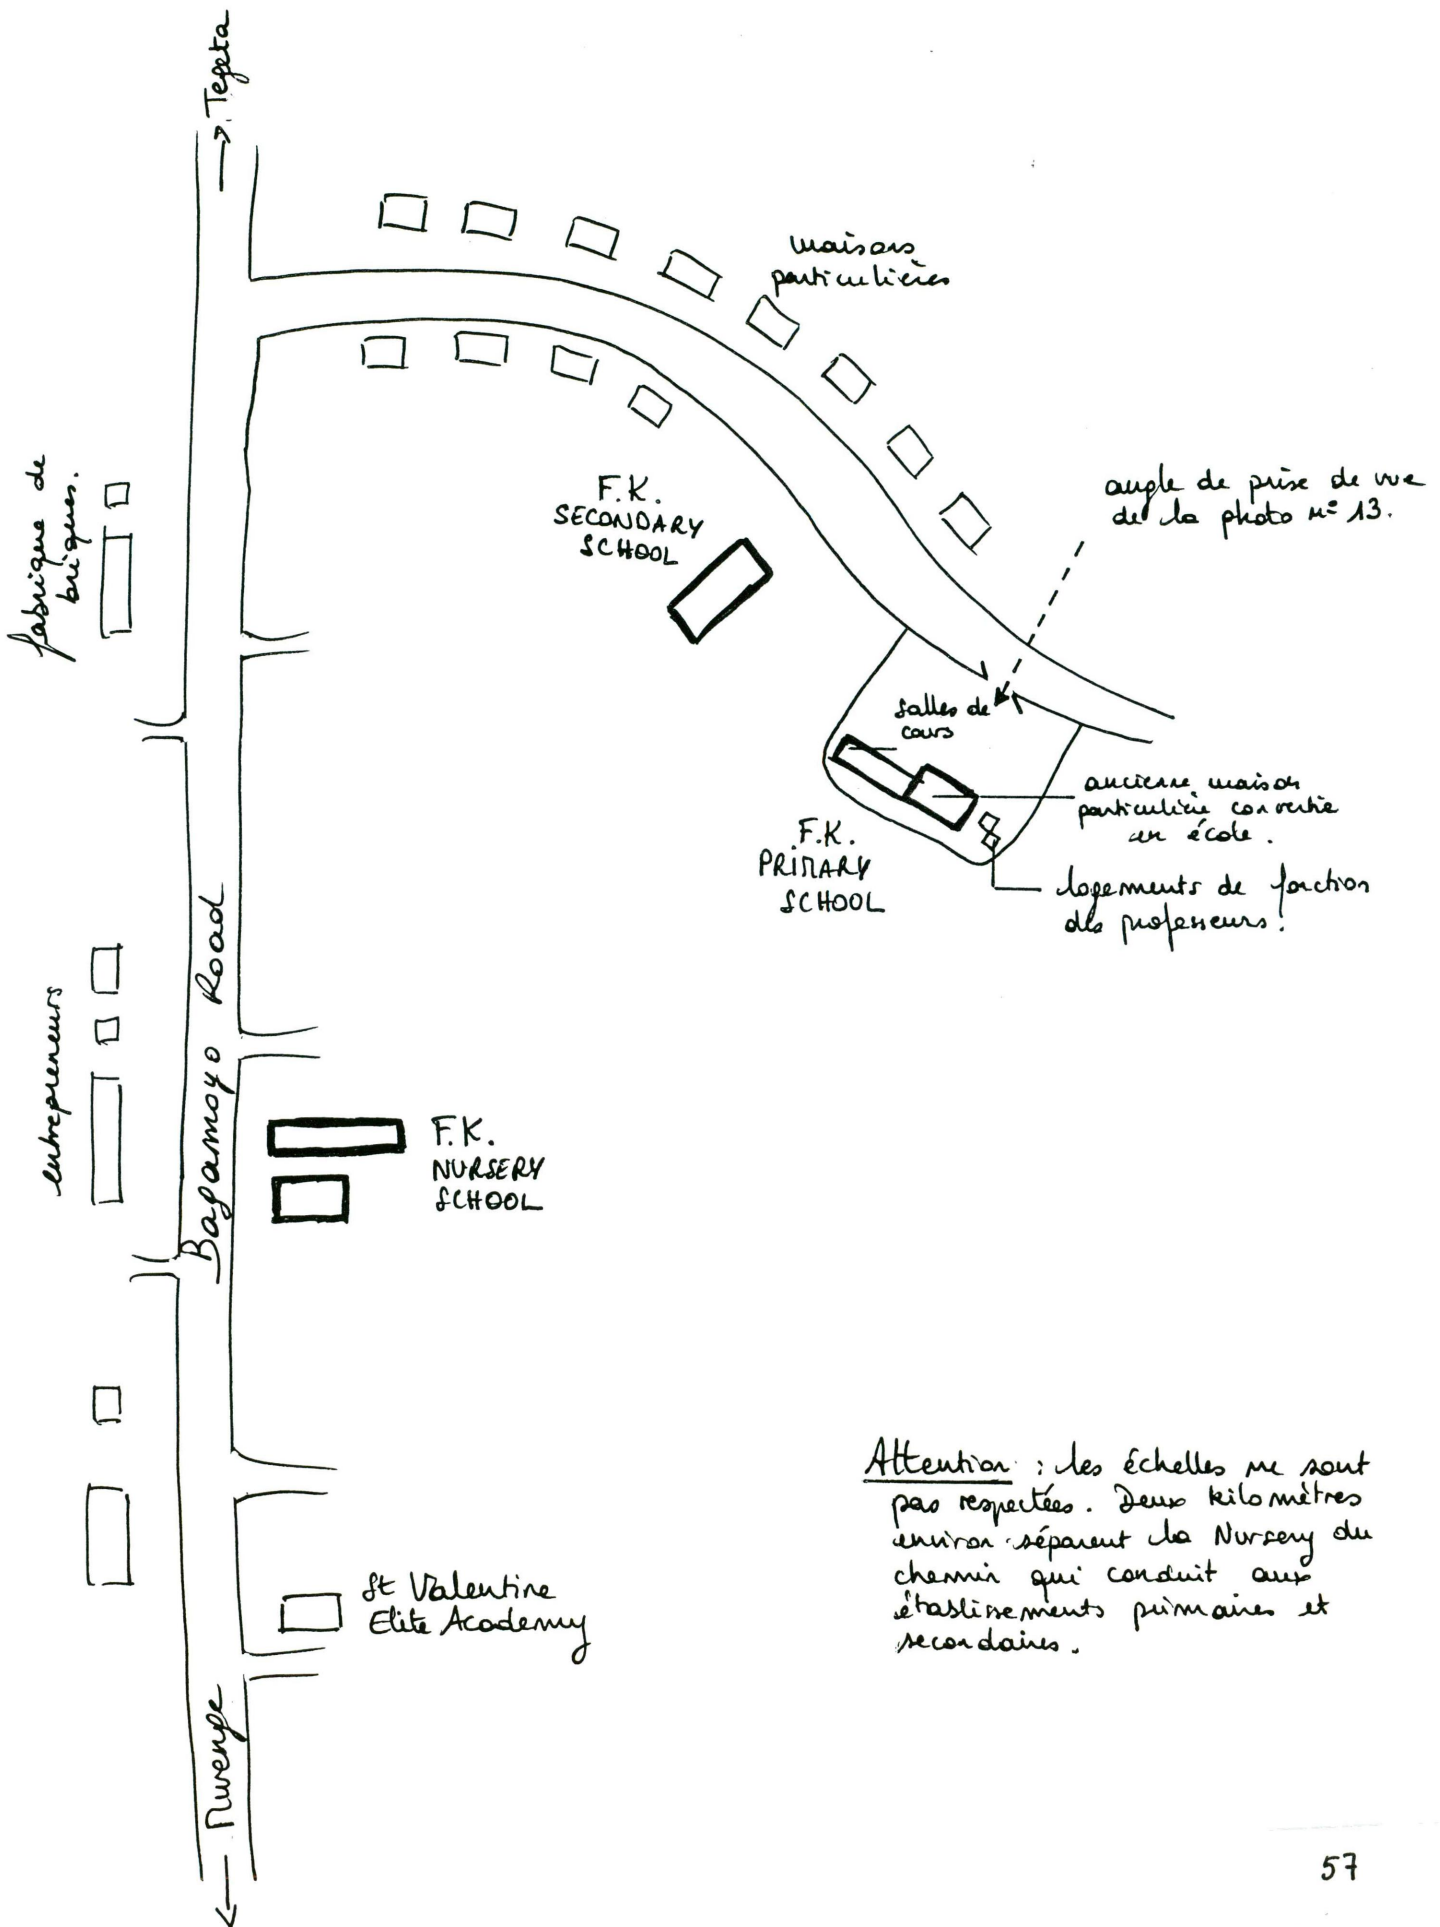 → Tegeta
maisons
particulières
fabrique de
briques.
F.K.
SECONDARY
SCHOOL
angle de prise de vue
de la photo n° 13.
salles de
cours
ancienne maison
particulière convertie
en école.
F.K.
PRIMARY
SCHOOL
logements de fonction
des professeurs.
entrepreneurs
Bagamoyo Road
F.K.
NURSERY
SCHOOL
St Valentine
Elite Academy
Attention : les échelles ne sont
pas respectées. Deux kilomètres
environ séparent la Nursery du
chemin qui conduit aux
établissements primaires et
secondaires.
← Mwenge
57